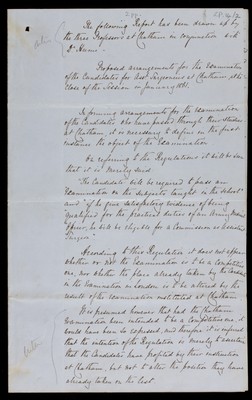 The following Report has been drawn up by
the three Professors at Chatham in conjunction with
Dr
Proposed arrangements for the Examination
of the Candidates for Asst. Surgeoncies at Chatham, at the
close of the Session in January 1861.
In forming arrangements for the Examination
of the Candidates who have passed through their studies
at Chatham, it is necessary to define in the first
instance the object of the Examination
On referring to the Regulations it will be seen
that it is merely said
"The Candidate will be required to pass an
Examination on the subjects taught in the School"
and "if he give satisfactory evidence of being
qualified for the practical duties of an Army Medical
Officer, he will be eligible for a Commission as Assistant
Surgeon"
According to this Regulation it does not appear
whether or not the Examination is to be a Competitive
one, nor whether the place already taken by the Candidate
in the Examination in London is to be altered by the
results of the Examination instituted at Chatham
It is presumed however that had the Chatham
Examination been intended to be a Competitive one, it
would have been so expressed, and therefore it is inferred
that the intention of the Regulation is merely to ascertain
that the Candidates have profited by their instruction
at Chatham, but not to alter the position they have
already taken on the List